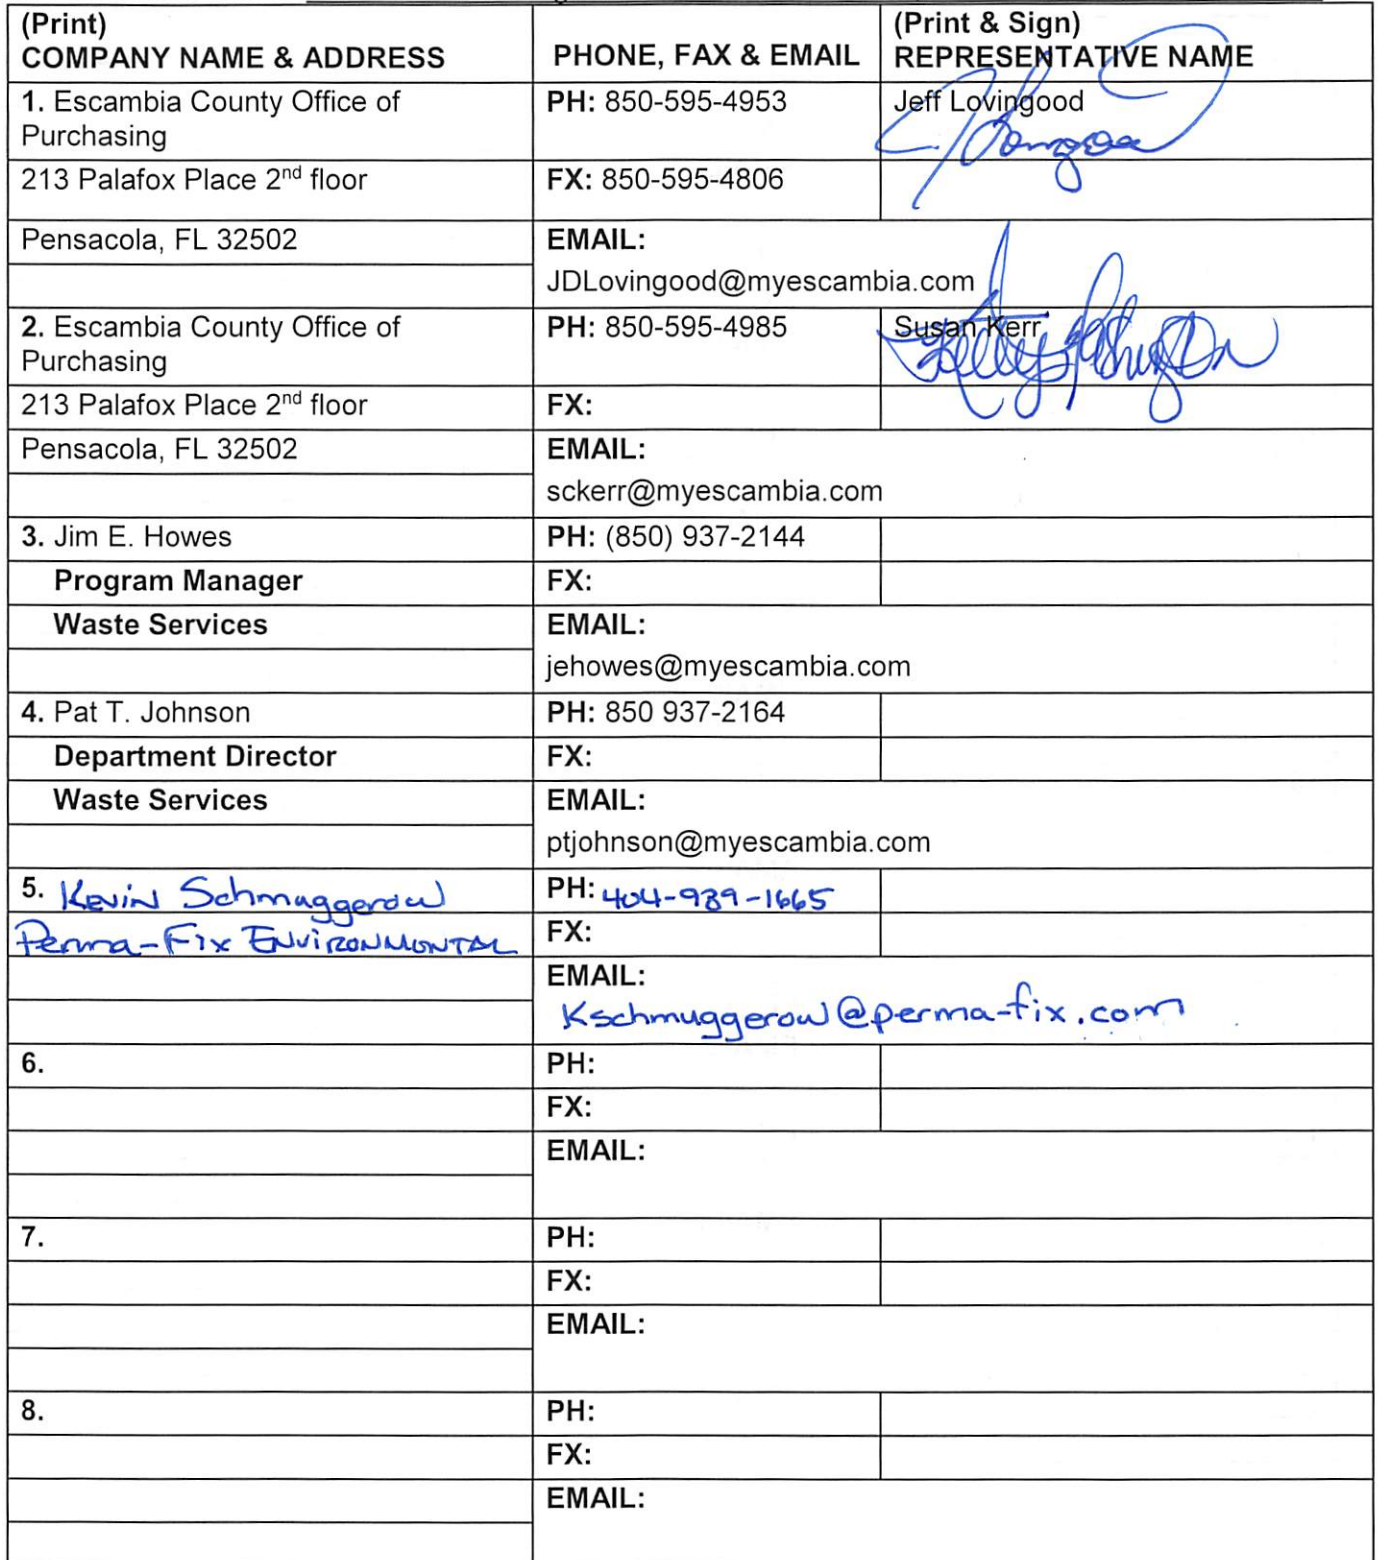 (Print)
COMPANY NAME & ADDRESS
PHONE, FAX & EMAIL
(Print & Sign)
REPRESENTATIVE NAME
1. Escambia County Office of
Purchasing
PH: 850-595-4953
Jeff Lovingood
213 Palafox Place 2nd floor
FX: 850-595-4806
Pensacola, FL 32502
EMAIL:
JDLovingood@myescambia.com
2. Escambia County Office of
Purchasing
PH: 850-595-4985
Susan Kerr
213 Palafox Place 2nd floor
FX:
Pensacola, FL 32502
EMAIL:
sckerr@myescambia.com
3. Jim E. Howes
PH: (850) 937-2144
Program Manager
FX:
Waste Services
EMAIL:
jehowes@myescambia.com
4. Pat T. Johnson
PH: 850 937-2164
Department Director
FX:
Waste Services
EMAIL:
ptjohnson@myescambia.com
5. Kevin Schmuggerow
PH: 404-989-1665
Perma-Fix Environmental
FX:
EMAIL:
Kschmuggerow@perma-fix.com
6.
PH:
FX:
EMAIL:
7.
PH:
FX:
EMAIL:
8.
PH:
FX:
EMAIL: